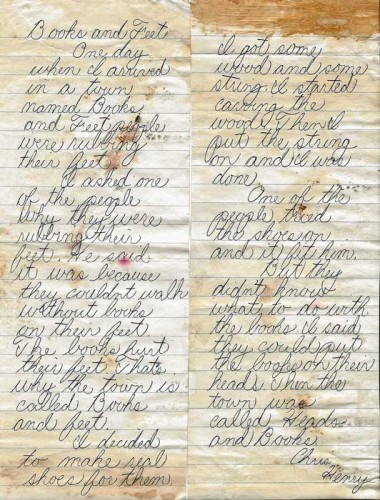 Books and Feet
One day
when I arrived
in a town
named Books
and Feet people
were rubbing
their feet.
I asked one
of the people
why they were
rubbing their
feet. He said
it was because
they couldnt walk
without books
on their feet
The books hurt
their feet. Thats
why the town is
called Books
and feet.
I decided
to make real
shoes for them.
I got some
wood and some
string. I started
carving the
wood. Then I
put the string
on and I was
done.
One of the
people tried
the shoes on
and it fit him.
But they
didn't know
what to do with
the books. I said
they could put
the books on their
heads. Then the
town was
called Heads
and Books.
Chris
Heney